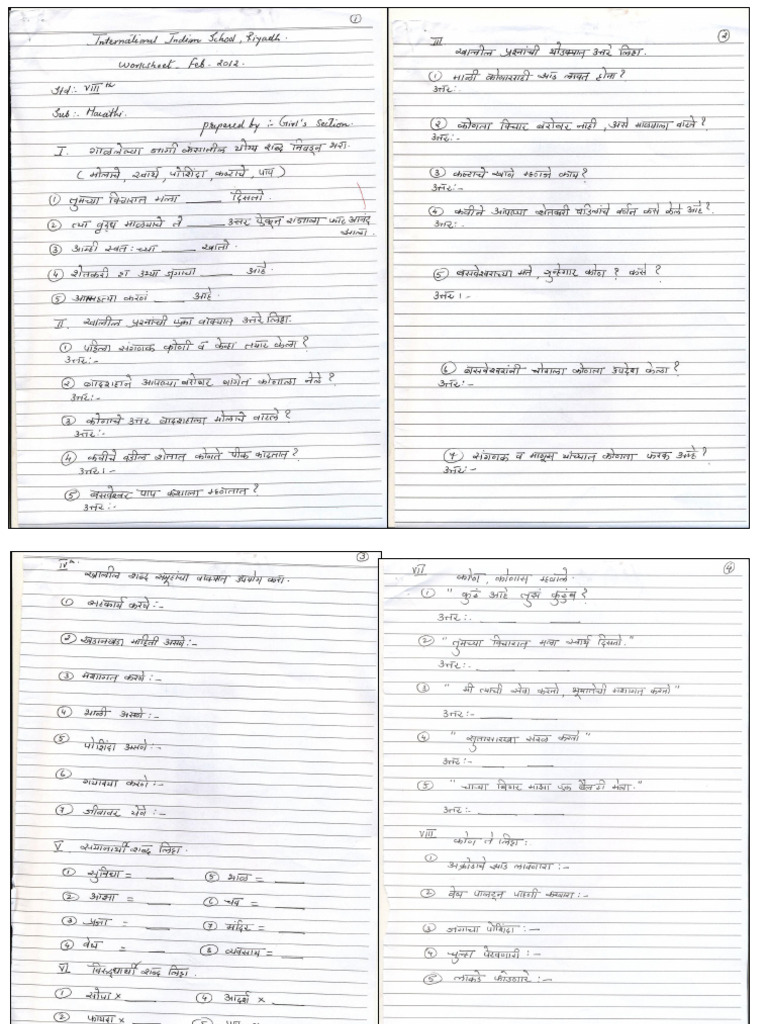 ①
International Indian School, Riyadh.
Worksheet Feb. 2012.
Std: VIII th
Sub: Marathi
prepared by :- Girl's Section.
I. गाळलेल्या जागी कंसातील योग्य शब्द निवडून भरा.
( मोलाचे, स्वार्थ, पोशिंदा, कष्टाचे, पाप )
① तुमच्या विचारात मला ______ दिसतो.
② त्या वृद्ध माळ्याचे ते ______ उत्तर ऐकून राजाला फार आनंद
झाला.
③ आम्ही स्वतः च्या ______ खातो.
④ शेतकरी हा उभ्या जगाचा ______ आहे.
⑤ आत्महत्या करणं ______ आहे.
II. खालील प्रश्नांची एका वाक्यात उत्तरे लिहा.
① पहिला संगणक कोणी व केव्हा तयार केला?
उत्तर:-
② बादशहाने आपल्या बरोबर बागेत कोणाला नेले?
उत्तर:-
③ कोणाचे उत्तर बादशहाला मोलाचे वाटले?
उत्तर:-
④ कवीचे वडील शेतात कोणते पीक काढतात?
उत्तर:-
⑤ बसवेश्वर पाप कशाला म्हणतात?
उत्तर:-
②
III. खालील प्रश्नांची थोडक्यात उत्तरे लिहा.
① माळी कोणासाठी झाड लावत होता?
उत्तर:-
② कोणता विचार बरोबर नाही, असे माळ्याला वाटते?
उत्तर:-
③ कष्टाचे खाणे म्हणजे काय?
उत्तर:-
④ कवीने आपल्या शेतकरी वडिलांचे वर्णन कसे केले आहे?
उत्तर:-
⑤ बसवेश्वराच्या मते, गुन्हेगार कोण? कसे?
उत्तर:-
⑥ बसवेश्वरांनी चोराला कोणता उपदेश केला?
उत्तर:-
⑦ संगणक व माणूस यांच्यात कोणता फरक आहे?
उत्तर:-
③
IV. खालील शब्द समूहांचा वाक्यात उपयोग करा.
① सहकार्य करणे:-
② खडानखडा माहिती असणे:-
③ मशागत करणे:-
④ भाळी असणे:-
⑤ पोशिंदा असणे:-
⑥ गयावया करणे:-
⑦ जीवावर येणे:-
V. समानार्थी शब्द लिहा.
① सुविधा = ____ ⑤ भाळ = ____
② आज्ञा = ____ ⑥ चव = ____
③ प्रजा = ____ ⑦ मंदिर = ____
④ वेध = ____ ⑧ व्यवसाय = ____
VI. विरुद्धार्थी शब्द लिहा.
① सोपा × ____ ④ आदर्श × ____
② फायदा × ____
④
VII कोण, कोणास म्हणाले.
① " कुठं आहे तुझं कुटुंब?
उत्तर:- ______ ______
② " तुमच्या विचारात मला स्वार्थ दिसतो."
उत्तर:- ______ ______
③ " मी त्याची सेवा करतो, भूमातेची मशागत करतो"
उत्तर:- ______ ______
④ " सुतासारखा सरळ करतो"
उत्तर:- ______ ______
⑤ " चाऱ्या बिगर माझा एक बैल बी मेला."
उत्तर:- ______ ______
VIII कोण ते लिहा:.
① अक्रोडाचे झाड लावणारा:-
② वेध पालटून पाहणी करणारा:-
③ जगाचा पोशिंदा:-
④ चुल्हा पेटवणारी:-
⑤ लाकडे फोडणारे:-